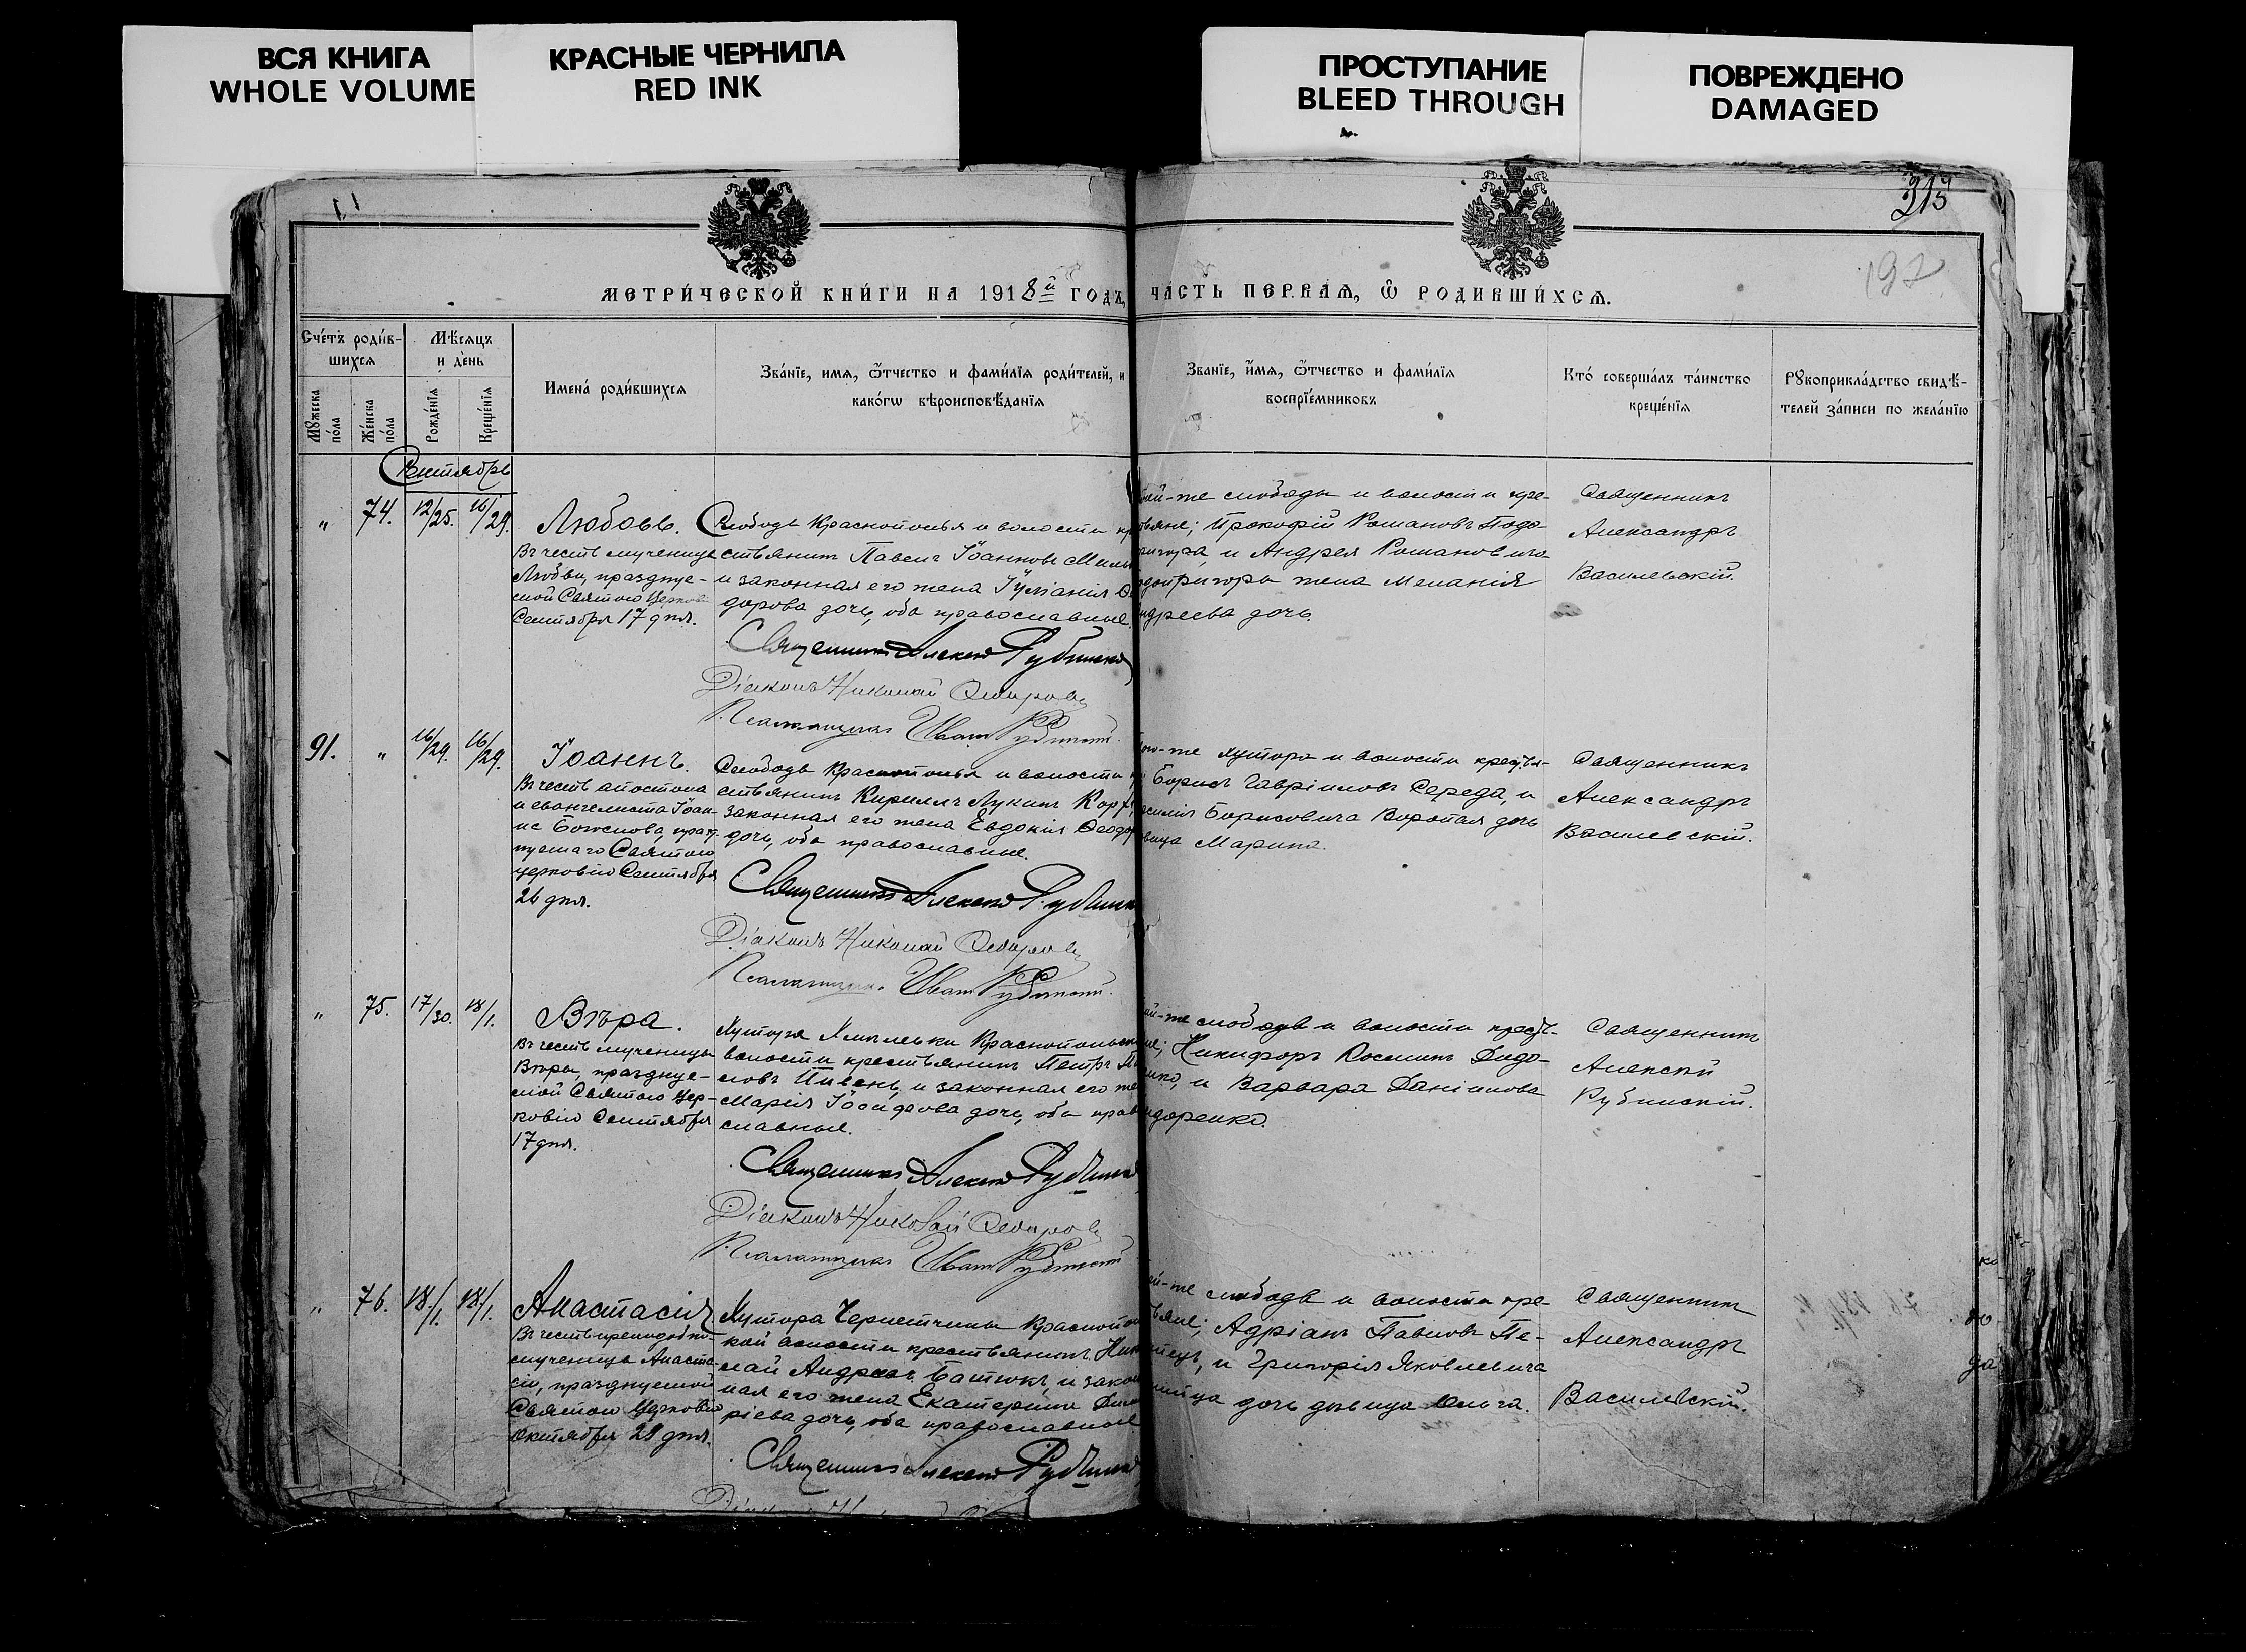 ВСЯ КНИГА
WHOLE VOLUME
КРАСНЫЕ ЧЕРНИЛА
RED INK
ПРОСТУПАНИЕ
BLEED THROUGH
ПОВРЕЖДЕНО
DAMAGED
213
192
МЕТРИ́ЧЕСКОЙ КНИ́ГИ НА 1918й ГОДЪ,
ЧА́СТЬ ПЕ́РВАѦ, Ѿ РОДИ́ВШИ́ХСѦ.
Сче́тъ роди́в-
шихсѧ
Мѣ́сѧцъ
и де́нь
Мꙋ́жеска
по́ла
Же́нска
по́ла
Рожде́нїѧ
Креще́нїѧ
Имена́ роди́вшихсѧ
Зва́нїе, имѧ, ѻ҆́тчество и фами́лїѧ роди́телей, и
како́гѡ вѣроисповѣ́данїѧ
Зва́нїе, и́мѧ, ѻ҆́тчество и фами́лїѧ
воспрїе́мниковъ
Кто́ соверша́лъ та́инство
креще́нїѧ
Рꙋкоприкла́дство свидѣ́-
телей за́писи по жела́нїю
Сентябрь
„ 74. 12/25. 16/29. Любовь.
Въ честь мученицы
Любви, празднуе-
мой Святою Церков
Сентября 17 дня.
Слободы Краснополья и волости кр
ствянинъ Павелъ Іоанновъ
и законная его жена Іуліанія Ѳе
дорова дочь, оба православные.
Священникъ Алексій Рубинскій
Діаконъ Николай
Псаломщикъ Иванъ Рубинскій
той-же слободы и волости кре-
стьяне; Прокофій Романовъ Подо-
пригора и Андрея Романовича
Подопригоры жена Меланія
Андреева дочь.
Священникъ
Александръ
Василевскій.
91. „ 16/29. 16/29. Іоаннъ.
Въ честь апостола
и евангелиста Іоан-
на Богослова, празд-
нуемаго Святою
церковію Сентября
26 дня.
Слободы Краснополья и волости
ствянинъ Кириллъ Лукинъ
законная его жена Евдокія Ѳеодор
дочь, оба православные.
Священникъ Алексій Рубинск
Діаконъ Николай
Псаломщикъ Иванъ Рубинскій
того-же хутора и волости крестья-
Борисъ Гавріиловъ Середа, и
Василія Борисовича Воропая дочь
дѣвица Марина.
Священникъ
Александръ
Василевскій.
„ 75. 17/30. 18/1. Вѣра.
Въ честь мученицы
Вѣры, празднуе-
мой Святою Цер-
ковію Сентября
17 дня.
Хутора Краснопольск
волости крестьянинъ Петръ
и законная его же
Марія дочь, оба прав
славные.
Священникъ Алексій Рубинскій
Діаконъ Николай
Псаломщикъ Иванъ Рубинскій
той-же слободы и волости крестья-
Никифоръ Косминъ Дидо-
ренко, и Варвара Даніилова
Дидоренко.
Священникъ
Алексій
Рубинскій.
„ 76. 18/1. 18/1. Анастасія
Въ честь преподобно-
мученицы Анаста-
сіи, празднуемой
Святою Церковію
Октября 29 дня.
Хутора Чернетчины Краснопол
кой волости крестьянинъ Ник
лай Андреевъ Батюкъ, и закон
ная его жена Екатерина Дими
ріева дочь, оба православные
Священникъ Алексій Рубинскій
той-же слободы и волости кре-
стьяне; Адріанъ Павловъ
и Григорія Яковлевича
дочь дѣвица Ольга.
Священникъ
Александръ
Василевскій.